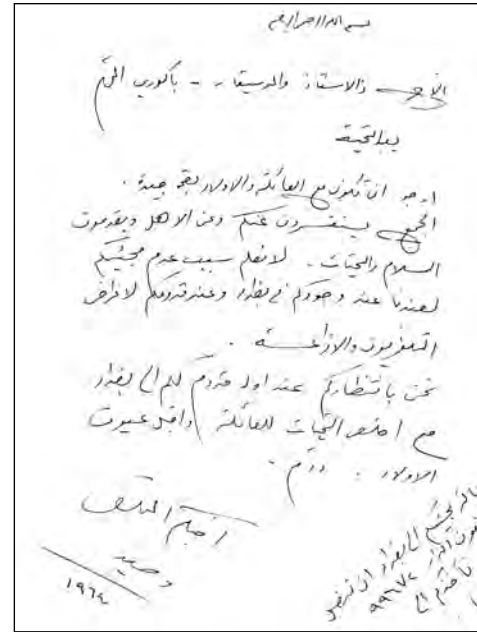 بسم الله الرحمن الرحيم
الأخ والاستاذ والموسيقار - باكوري
بعد التحية
ارجو ان تكون مع العائلة والاولاد بصحة جيدة .
الجميع يستفسرون عنكم وعن الاهل ويقدمون
السلام والتحيات - لا نعلم سبب عدم مجيئكم
لعندنا عند وجودكم في بغداد وعند قدومكم لاغراض
التلفزيون والاذاعة .
نحن بانتظاركم عند اول قدوم لكم الى بغداد
مع اخلص التحيات للعائلة واقبل عيون
الاولاد . ودمتم .
اخيكم المخلص
وحيد
الى بغداد ان